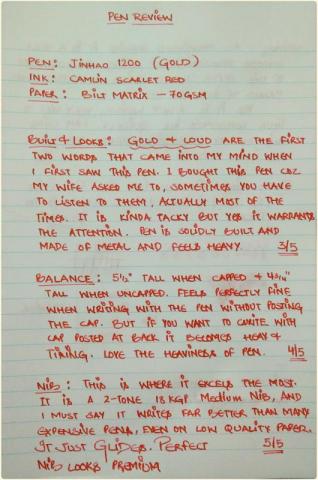 PEN REVIEW
PEN: JINHAO 1200 (GOLD)
INK: CAMLIN SCARLET RED
PAPER: BILT MATRIX – 70GSM
BUILT & LOOKS: GOLD & LOUD ARE THE FIRST
TWO WORDS THAT CAME INTO MY MIND WHEN
I FIRST SAW THIS PEN. I BOUGHT THIS PEN COZ
MY WIFE ASKED ME TO, SOMETIMES YOU HAVE
TO LISTEN TO THEM, ACTUALLY MOST OF THE
TIMES. IT IS KINDA TACKY BUT YES IT WARRANTS
THE ATTENTION. PEN IS SOLIDLY BUILT AND
MADE OF METAL AND FEELS HEAVY. 3/5
BALANCE: 5½" TALL WHEN CAPPED & 4¾"
TALL WHEN UNCAPPED. FEELS PERFECTLY FINE
WHEN WRITING WITH THE PEN WITHOUT POSTING
THE CAP. BUT IF YOU WANT TO WRITE WITH
CAP POSTED AT BACK IT BECOMES HEAVY &
TIRING. LOVE THE HEAVINESS OF PEN. 4/5
NIB: THIS IS WHERE IT EXCELS THE MOST.
IT IS A 2-TONE 18 KGP MEDIUM NIB, AND
I MUST SAY IT WRITES FAR BETTER THAN MANY
EXPENSIVE PENS, EVEN ON LOW QUALITY PAPER.
IT JUST GLIDES. PERFECT 5/5
NIB LOOKS PREMIUM